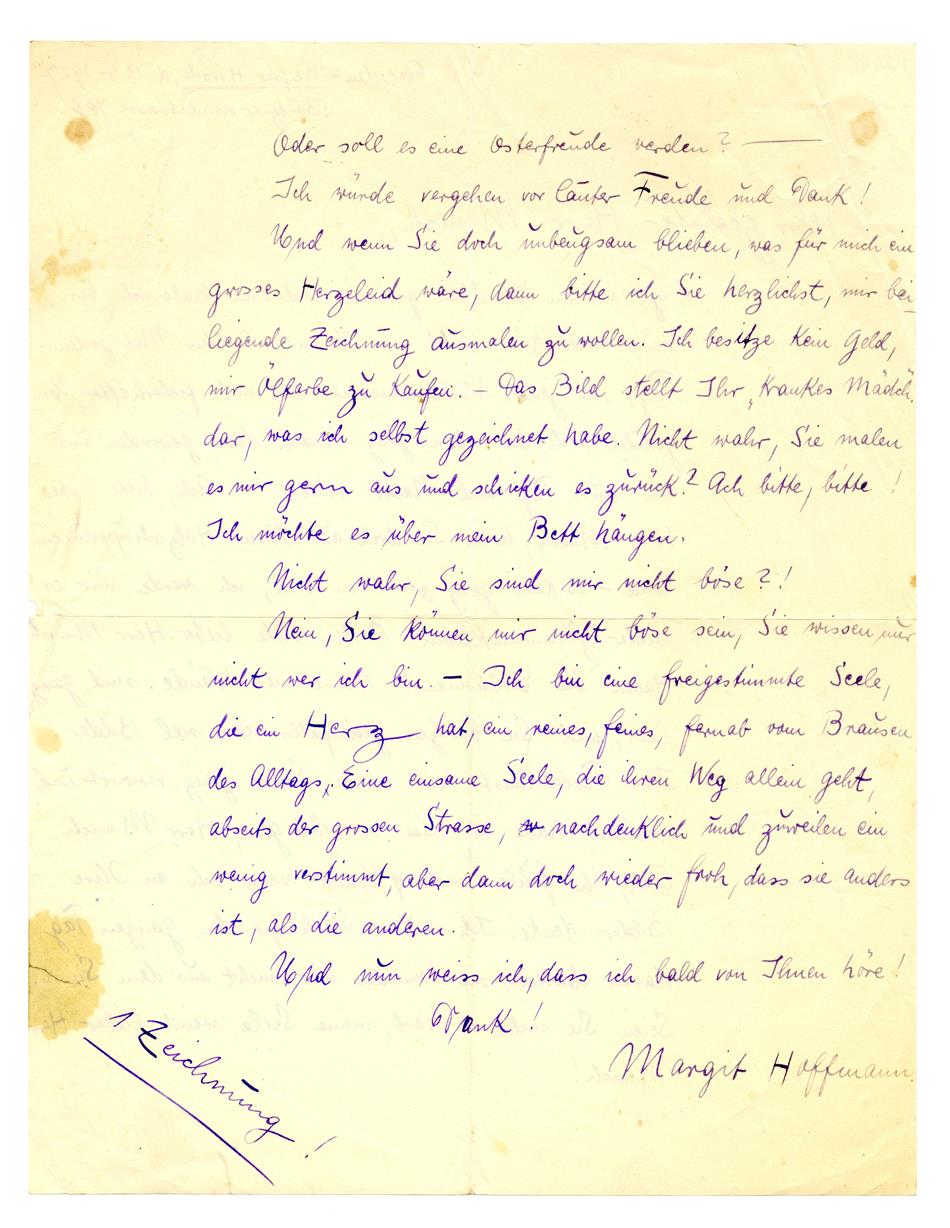 Oder soll es eine Osterfreude werden? —
Ich würde vergehen vor lauter Freude und Dank!
Und wenn Sie doch unbeugsam blieben, was für mich ein
grosses Herzeleid wäre, dann bitte ich Sie herzlichst, mir bei-
liegende Zeichnung ausmalen zu wollen. Ich besitze kein Geld,
mir Ölfarbe zu kaufen. – Das Bild stellt Ihr „Krankes Mädch.
dar, was ich selbst gezeichnet habe. Nicht wahr, Sie malen
es mir gern aus und schicken es zurück? Ach bitte, bitte!
Ich möchte es über mein Bett hängen.
Nicht wahr, Sie sind mir nicht böse?!
Nein, Sie können mir nicht böse sein, Sie wissen nur
nicht wer ich bin. – Ich bin eine freigestimmte Seele,
die ein Herz hat, ein reines, feines, fernab vom Brausen
des Alltags. Eine einsame Seele, die ihren Weg allein geht,
abseits der grossen Strasse, nachdenklich und zuweilen ein
wenig verstimmt, aber dann doch wieder froh, dass sie anders
ist, als die anderen.
Und nun weiss ich, dass ich bald von Ihnen höre!
Dank!
Margit Hoffmann.
1 Zeichnung!